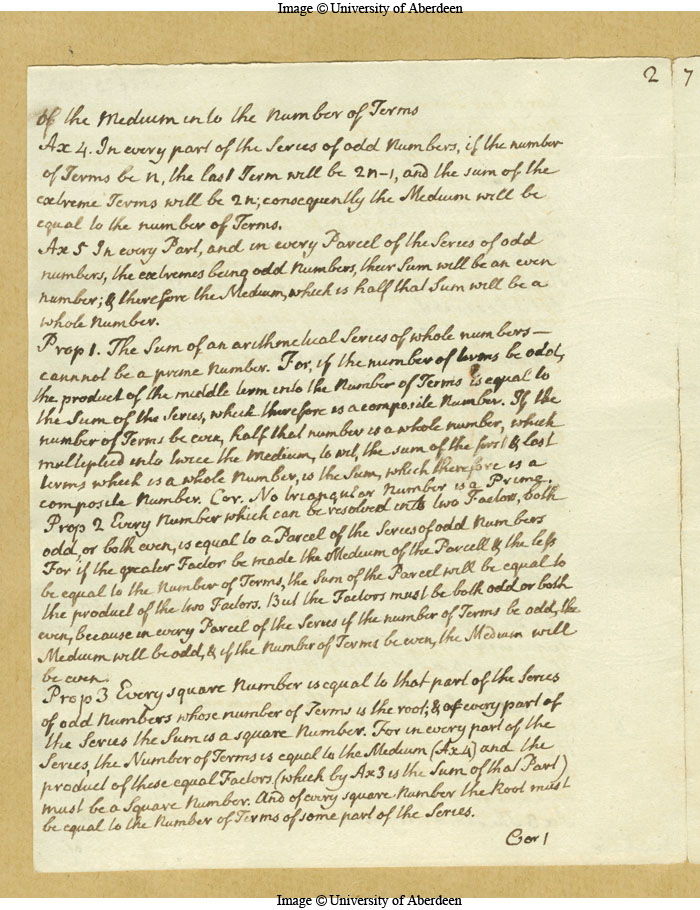 Image © University of Aberdeen
2
7
of the Medium into the Number of Terms
Ax 4. In every part of the Series of odd Numbers, if the number
of Terms be n, the last Term will be 2n-1, and the sum of the
extreme Terms will be 2n; consequently the Medium will be
equal to the number of Terms.
Ax 5 In every Part, and in every Parcel of the Series of odd
numbers, the extremes being odd Numbers, their Sum will be an even
number; & therefore the Medium, which is half that Sum will be a
whole Number.
Prop 1. The Sum of an arithmetical Series of whole numbers—
cannnot be a prime Number. For, if the number of terms be odd,
the product of the middle term into the Number of Terms is equal to
the Sum of the Series, which therefore is a composite Number. If the
number of Terms be even, half that number is a whole number, which
multiplied into twice the Medium, to wit, the sum of the first & last
terms which is a whole Number, is the Sum, which therefore is a
composite Number. Cor. No triangular Number is a Prime.
Prop 2 Every Number which can be resolved into two Factors, both
odd, or both even, is equal to a Parcel of the Series of odd Numbers
For if the greater Factor be made the Medium of the Parcell & the less
be equal to the Number of Terms, the Sum of the Parcel will be equal to
the product of the two Factors. But the Factors must be both odd or both
even, because in every Parcel of the Series if the number of Terms be odd, the
Medium will be odd, & if the Number of Terms be even, the Medium will
be even.
Prop 3 Every square Number is equal to that part of the Series
of odd Numbers whose number of Terms is the root; & of every part of
the Series the Sum is a square Number. For in every part of the
Series, the Number of Terms is equal to the Medium (Ax 4) and the
product of these equal Factors (which by Ax 3 is the Sum of that Part)
must be a Square Number. And of every square Number the Root must
be equal to the Number of Terms of some part of the Series.
Cor 1
Image © University of Aberdeen